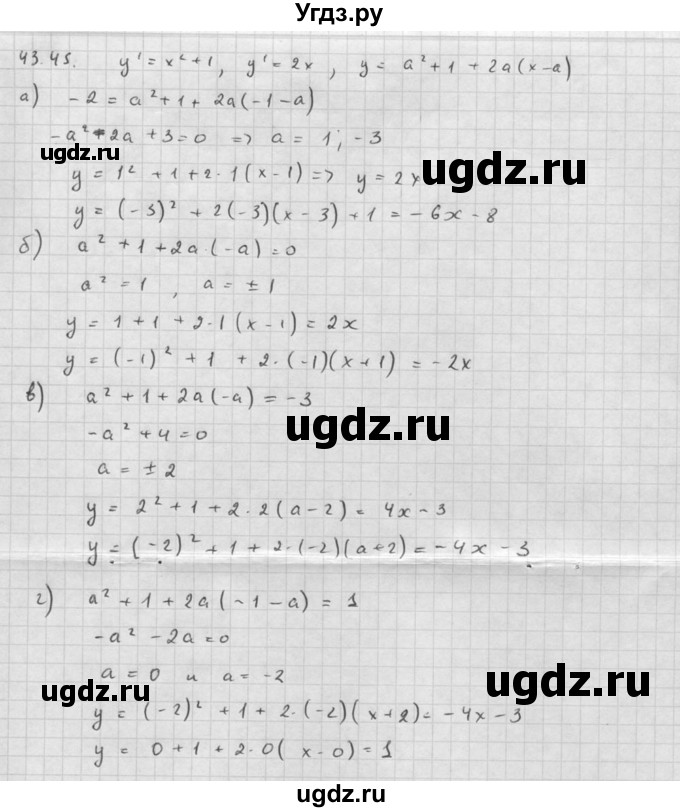 Угдз.ру
43.45. y' = x² + 1, y' = 2x, y = a² + 1 + 2a(x-a)
а) -2 = a² + 1 + 2a(-1-a)
-a² - 2a + 3 = 0 => a = 1; -3
ugdz.ru ugdz.ru
y = 1² + 1 + 2·1(x-1) => y = 2x
y = (-3)² + 2(-3)(x-3) + 1 = -6x - 8
б) a² + 1 + 2a·(-a) = 0
a² = 1, a = ±1
y = 1 + 1 + 2·1(x-1) = 2x
y = (-1)² + 1 + 2·(-1)(x+1) = -2x
в) a² + 1 + 2a(-a) = -3
ugdz.ru
-a² + 4 = 0
a = ±2
y = 2² + 1 + 2·2(a-2) = 4x - 3
y = (-2)² + 1 + 2·(-2)(a+2) = -4x - 3
г) a² + 1 + 2a(-1-a) = 1
-a² - 2a = 0
a = 0 и a = -2
ugdz.ru ugdz.ru
y = (-2)² + 1 + 2·(-2)(x+2) = -4x - 3
y = 0 + 1 + 2·0(x-0) = 1
ugdz.ru